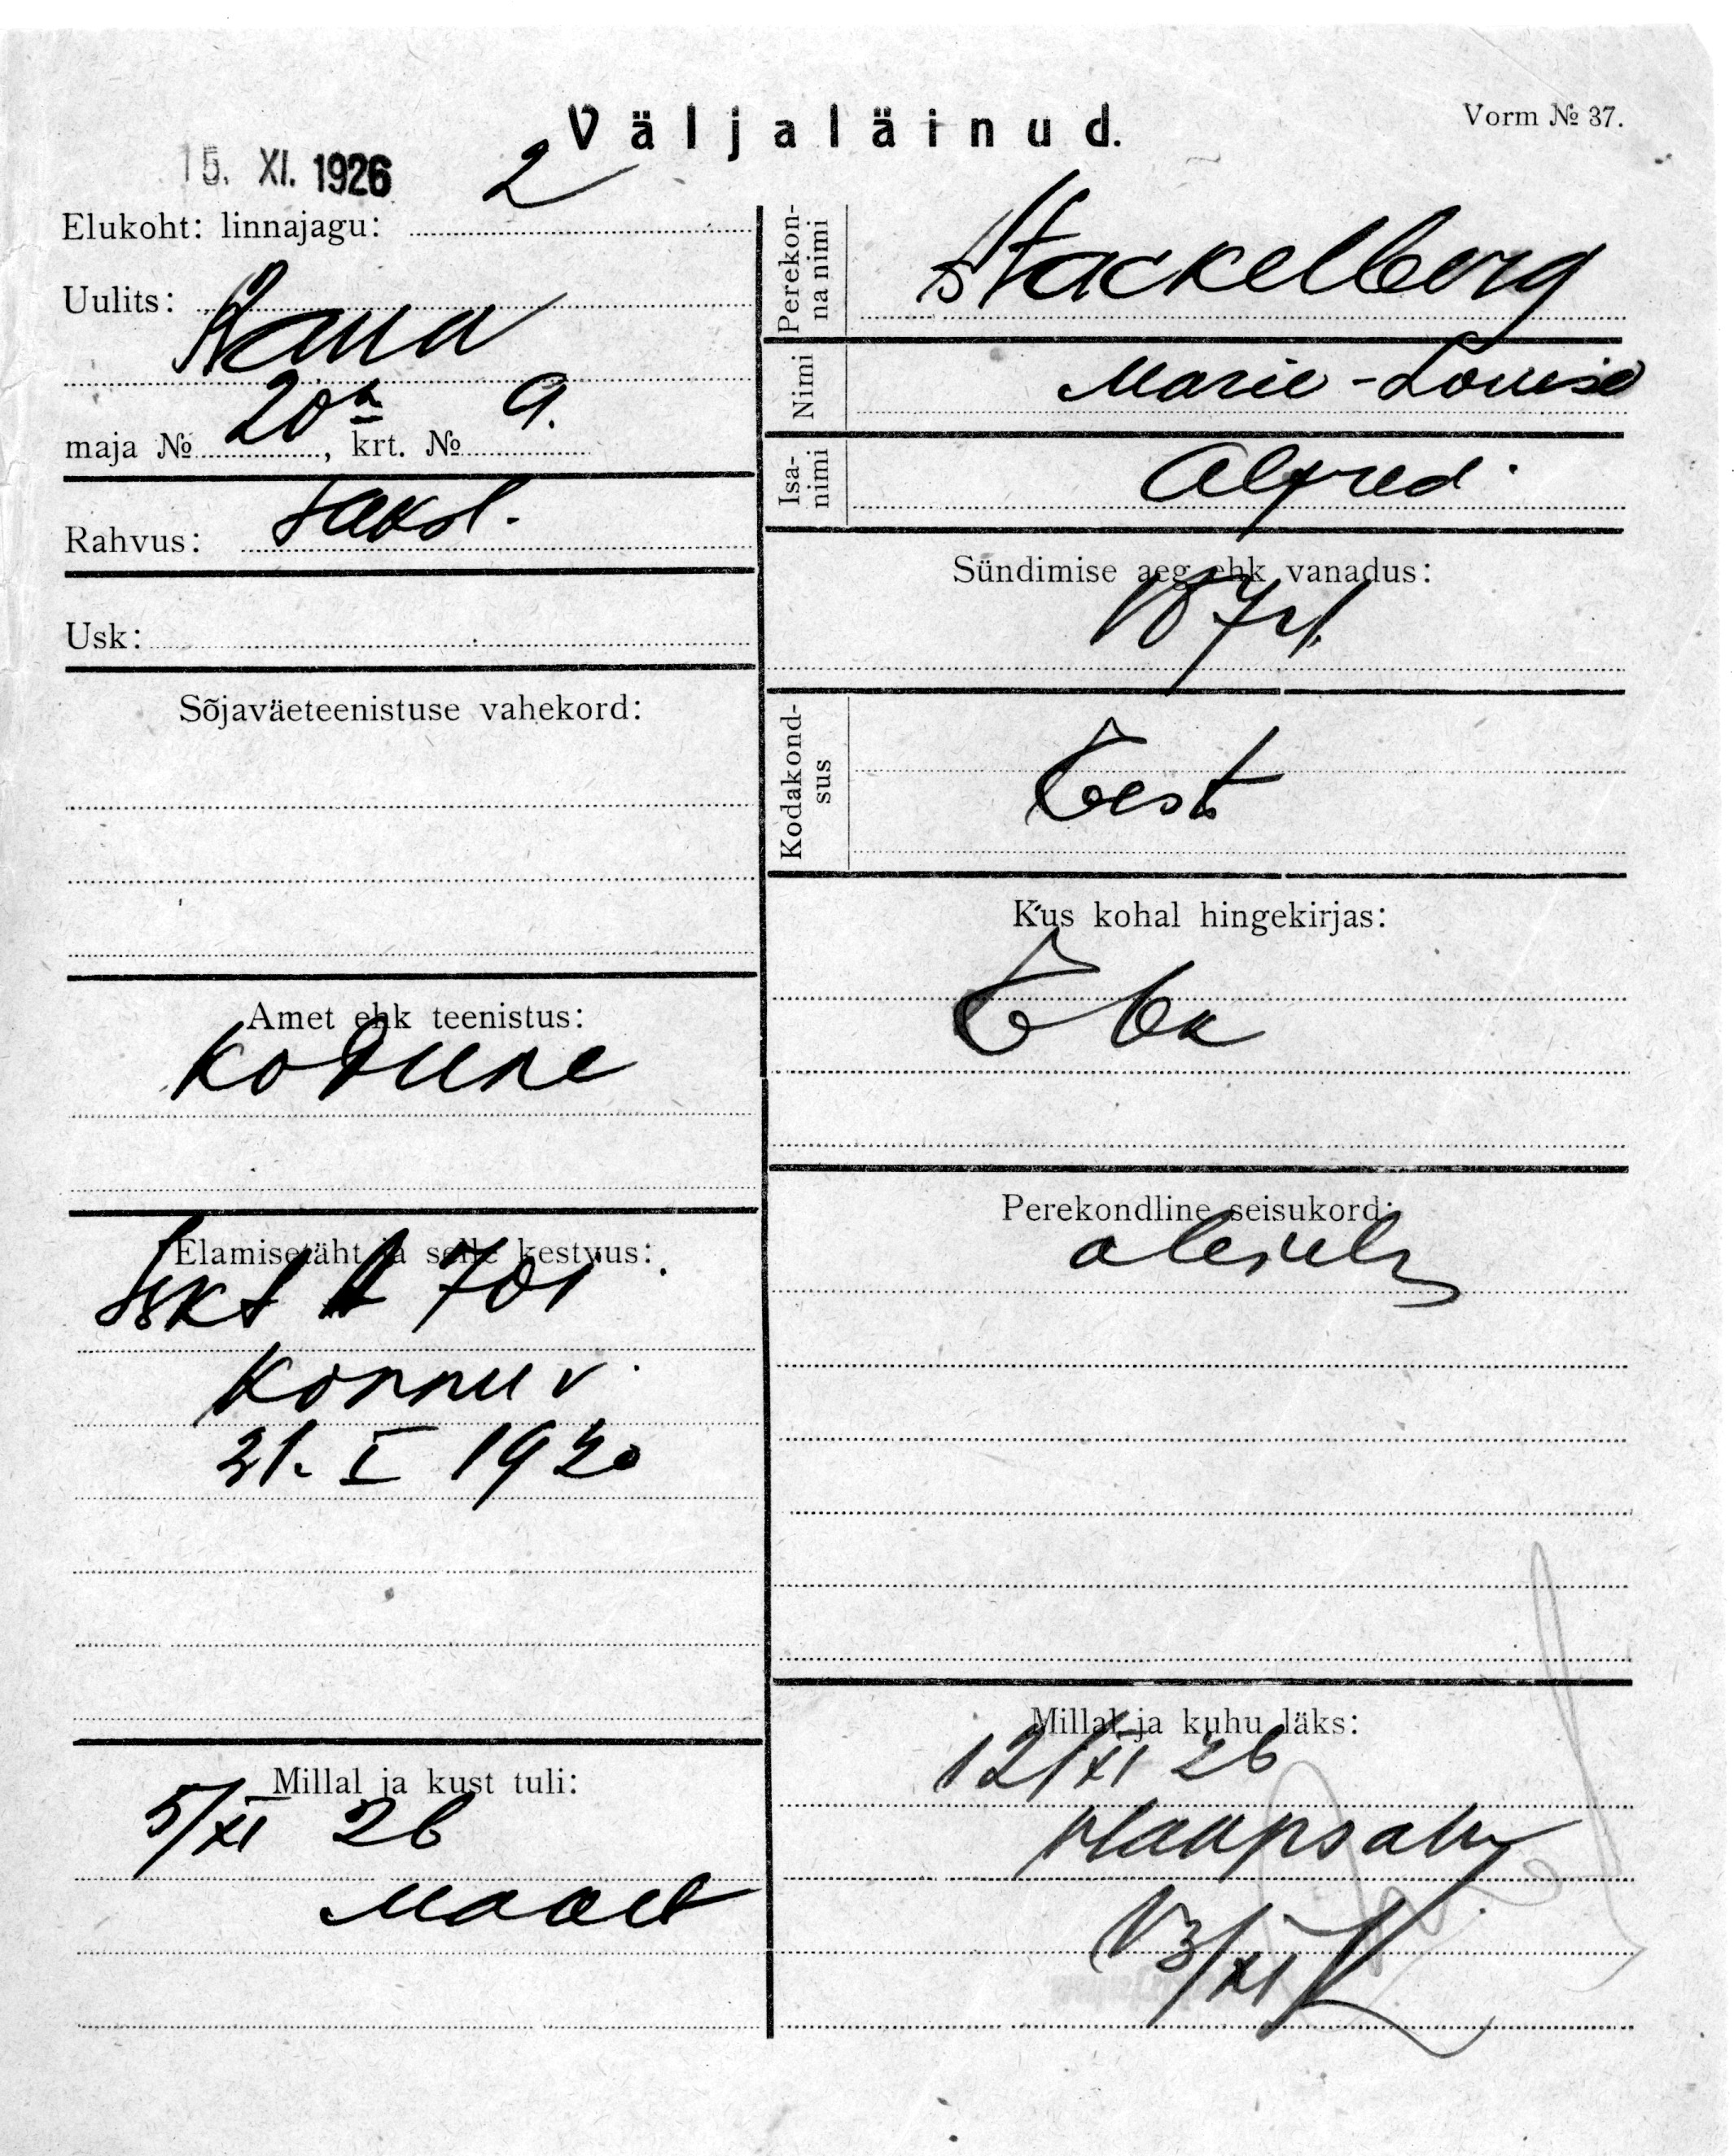 Väljaläinud.
Vorm № 37.
15. XI. 1926
2
Elukoht: linnajagu:
Uulits:
Raua
maja № 20a, krt. № 9.
Rahvus: saksl.
Usk:
Sõjaväeteenistuse vahekord:
Amet ehk teenistus:
Kodune
Elamisetäht ja selle kestvus:
Iskt A 701
Konnu v.
21. I 1920
Millal ja kust tuli:
5/XI 26
Maalt
Perekonna nimi
Stackelberg
Nimi
Marie-Louise
Isanimi
Alfred
Sündimise aeg ehk vanadus:
Kodakondsus
Eest
Kus kohal hingekirjas:
Ebk
Perekondline seisukord:
abielus
Millal ja kuhu läks:
12/XI 26
Haapsalu
13/XI